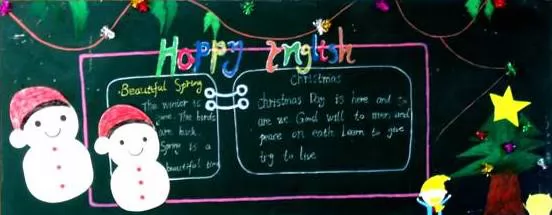 Happy English
Beautiful Spring
The winter is
gone. The birds
are back.
Spring is a
beautiful time
Christmas
christmas Day is here and so
are we Good will to men and
peace on eath Learn to give
try to live